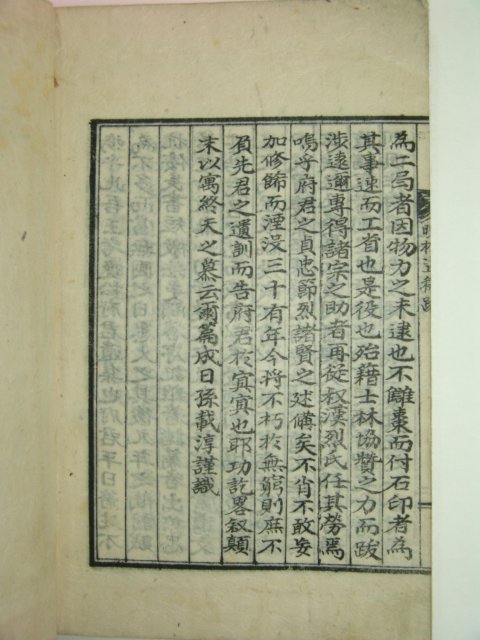 為二局者因物力之未逮也不離棗而付石印者為
其事速而工省也是役也殆藉士林協贊之力而跋
涉遠邇專得諸宗之助者再從权漢烈氏任其勞焉
嗚乎府君之貞忠節烈諸賢之述備矣不肖不敢妄
加修餙而湮没三十有年今將不朽於無窮則庶不
負先君之遺訓而告府君於㝠㝠也耶功訖畧叙顛
末以寓終天之慕云爾篇成日孫載淳謹識